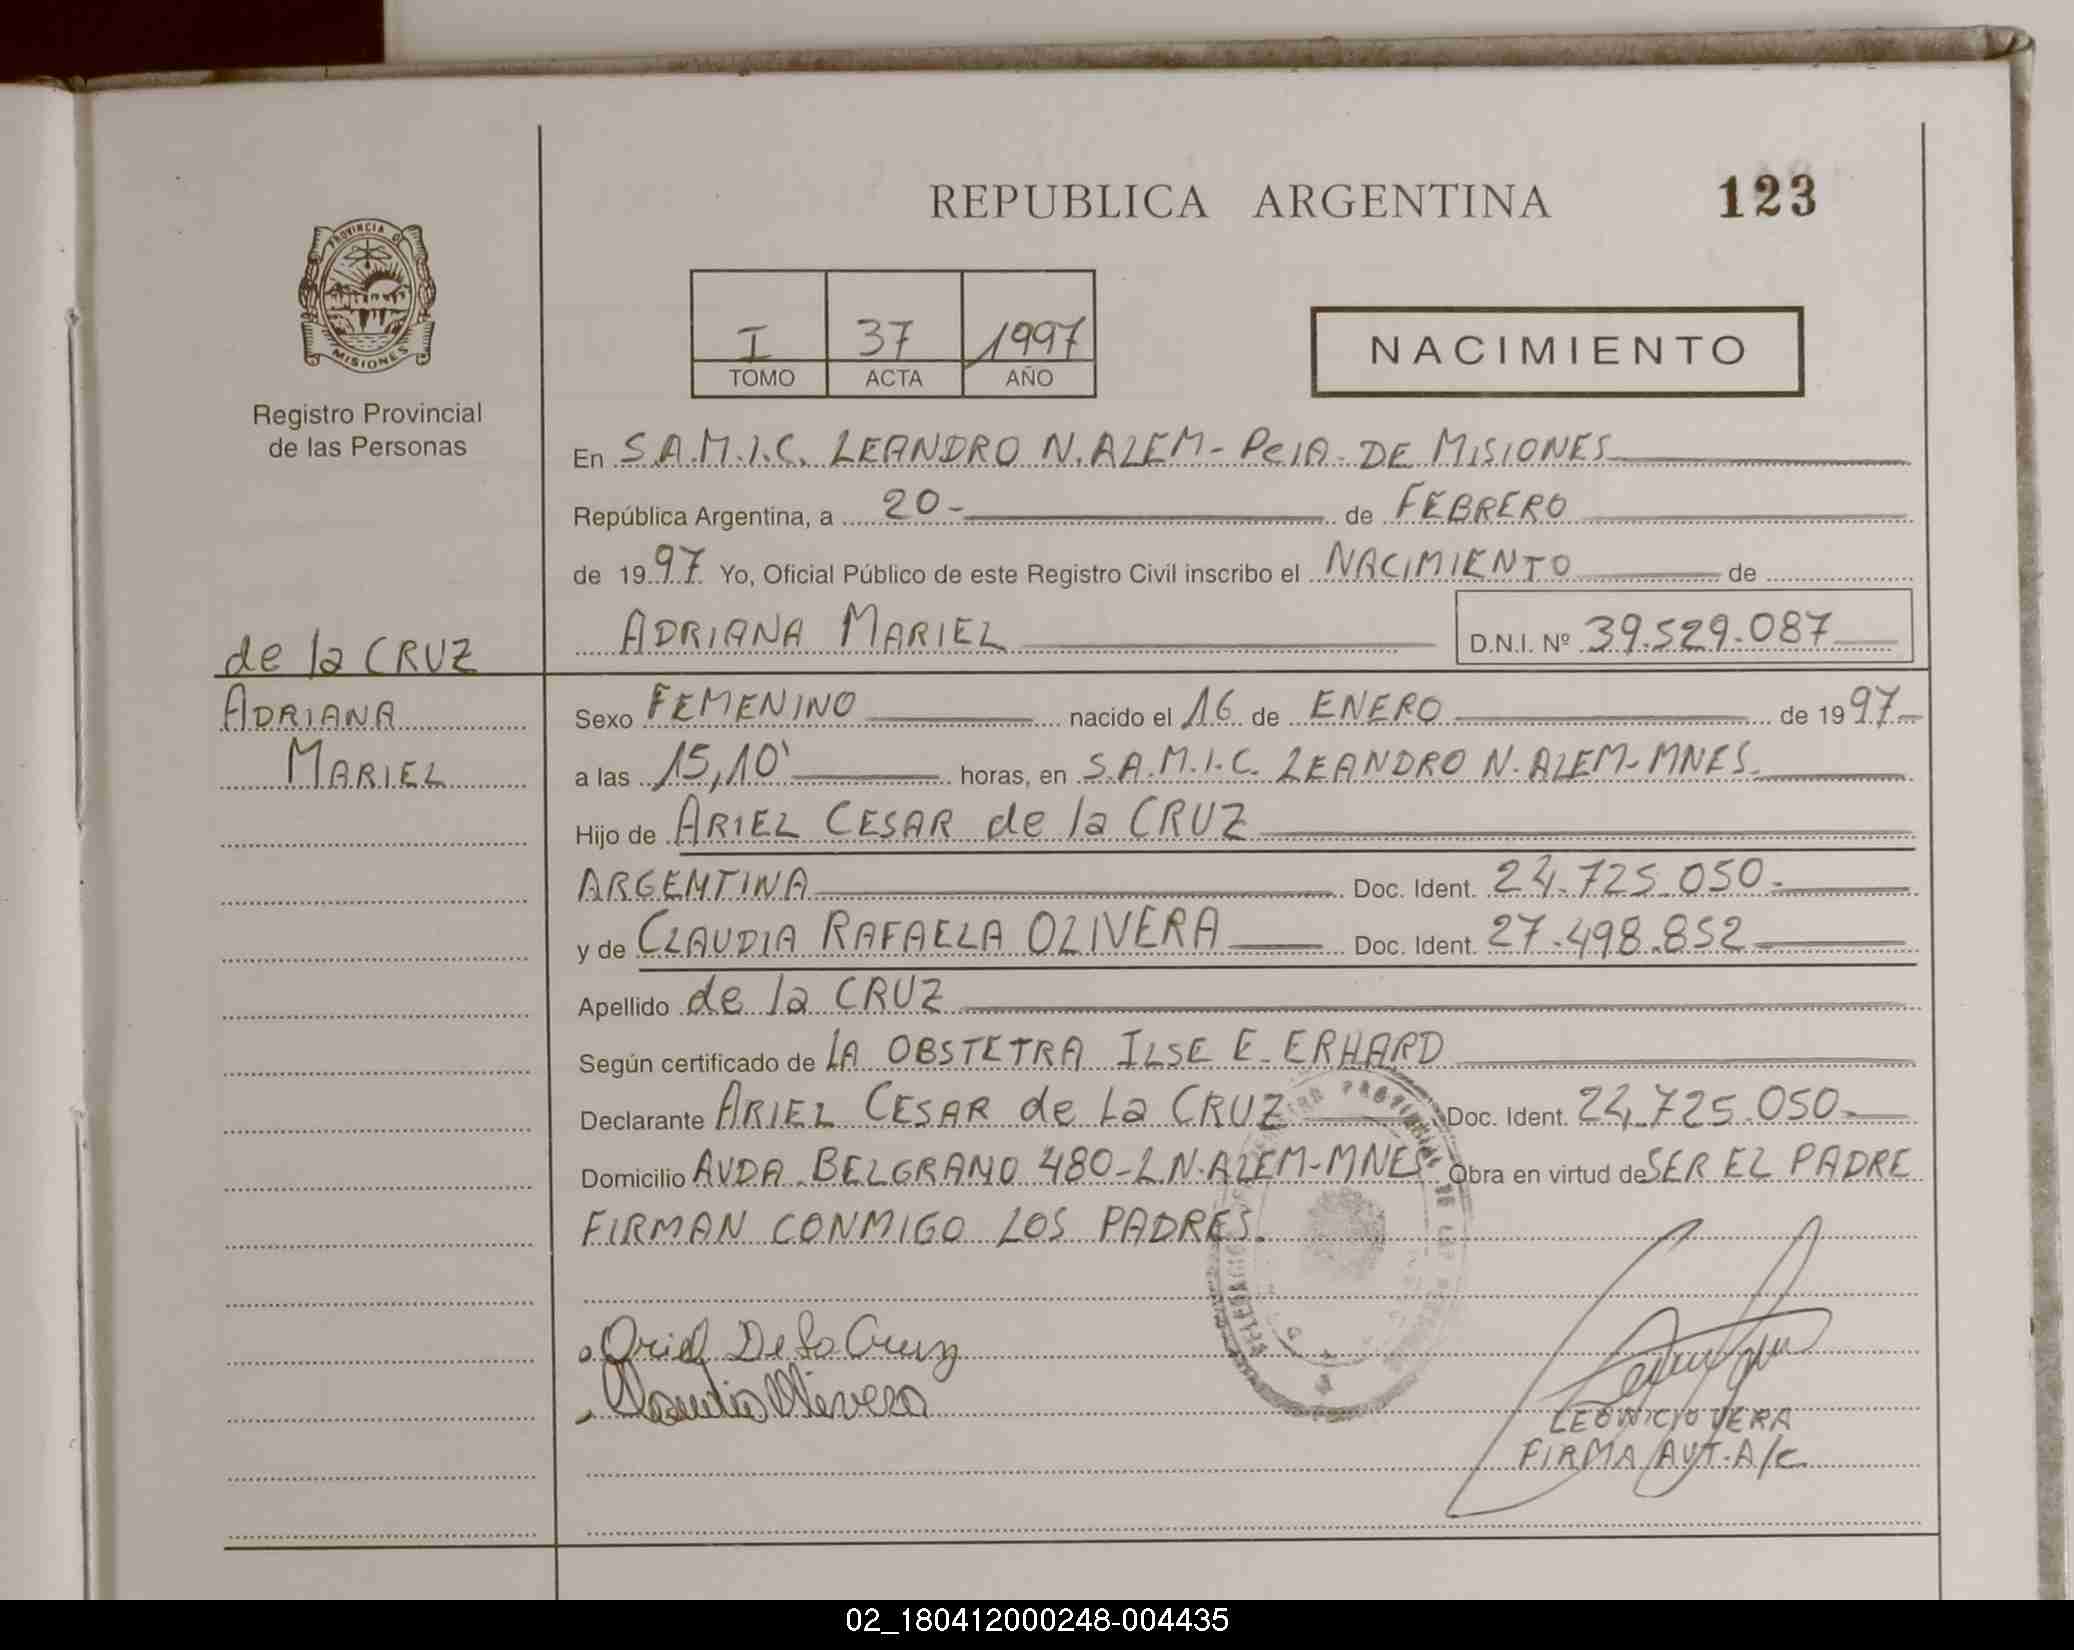 REPUBLICA ARGENTINA
123
PROVINCIA DE
MISIONES
Registro Provincial
de las Personas
I 37 1997
TOMO ACTA AÑO
NACIMIENTO
En S.A.M.I.C. LEANDRO N. ALEM - PCIA. DE MISIONES
República Argentina, a 20- de FEBRERO
de 1997 Yo, Oficial Público de este Registro Civil inscribo el NACIMIENTO de
ADRIANA MARIEL D.N.I. Nº 39.529.087
de la CRUZ
ADRIANA
MARIEL
Sexo FEMENINO nacido el 16 de ENERO de 1997
a las 15,10' horas, en S.A.M.I.C. LEANDRO N. ALEM-MNES.
Hijo de ARIEL CESAR de la CRUZ
ARGENTINA Doc. Ident. 24.725.050-
y de CLAUDIA RAFAELA OLIVERA Doc. Ident. 27.498.852
Apellido de la CRUZ
Según certificado de LA OBSTETRA ILSE E. ERHARD
Declarante ARIEL CESAR de La CRUZ Doc. Ident. 24.725.050-
Domicilio AVDA. BELGRANO 480-L.N.ALEM-MNES Obra en virtud de SER EL PADRE
FIRMAN CONMIGO LOS PADRES.
Ariel De La Cruz
Claudia Olivera
LEONICIO VERA
FIRMA AUT. A/C.
02_180412000248-004435